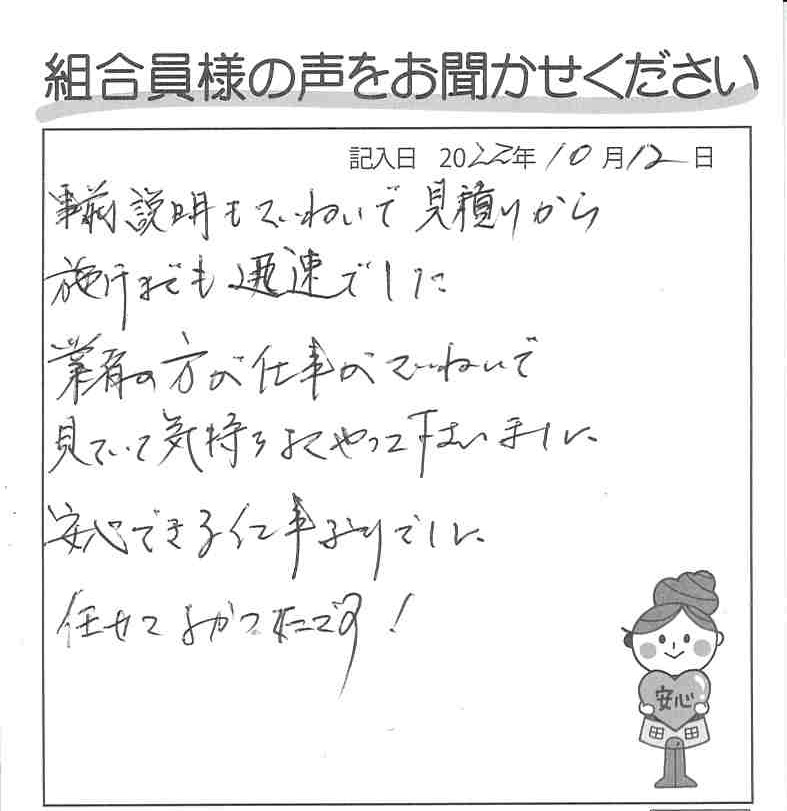 組合員様の声をお聞かせください
記入日 2022年10月12日
事前説明もていねいで見積りから
施行までも迅速でした
業者の方が仕事がていねいで
見ていて気持ちよくやって下さいました。
安心できる仕事ぶりでした。
任せてよかったです!
安心